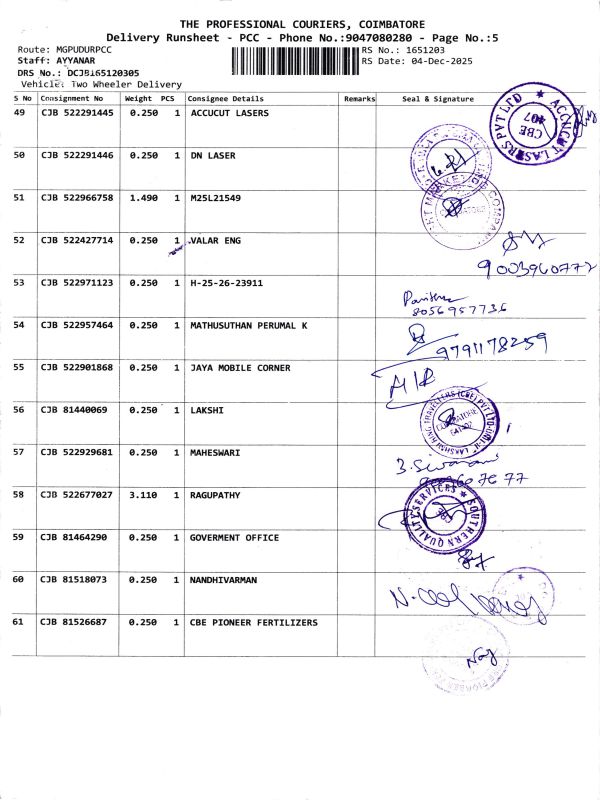 THE PROFESSIONAL COURIERS, COIMBATORE
Delivery Runsheet - PCC - Phone No.:9047080280 - Page No.:5
Route: MGPUDURPCC
RS No.: 1651203
Staff: AYYANAR
RS Date: 04-Dec-2025
DRS No.: DCJB165120305
Vehicle: Two Wheeler Delivery
S No Consignment No Weight PCS Consignee Details Remarks Seal & Signature
49 CJB 522291445 0.250 1 ACCUCUT LASERS
ACCUCUT LASERS PVT LTD ★
CBE
407
50 CJB 522291446 0.250 1 DN LASER
51 CJB 522966758 1.490 1 M25L21549
52 CJB 522427714 0.250 1 VALAR ENG
9003960777
53 CJB 522971123 0.250 1 H-25-26-23911
8056957736
54 CJB 522957464 0.250 1 MATHUSUTHAN PERUMAL K
9791178259
55 CJB 522901868 0.250 1 JAYA MOBILE CORNER
56 CJB 81440069 0.250 1 LAKSHI
57 CJB 522929681 0.250 1 MAHESWARI
58 CJB 522677027 3.110 1 RAGUPATHY
SOUTHERN QUALITY SERVICES ★
59 CJB 81464290 0.250 1 GOVERMENT OFFICE
60 CJB 81518073 0.250 1 NANDHIVARMAN
61 CJB 81526687 0.250 1 CBE PIONEER FERTILIZERS